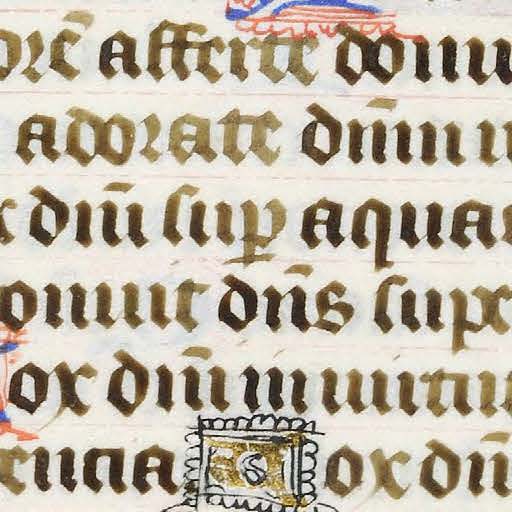 orē afferte domi
adorate dn̄m i
x dn̄i suꝑ aquas
onuit dn̄s supe
ox dn̄i in uirtu
encia ox dn̄